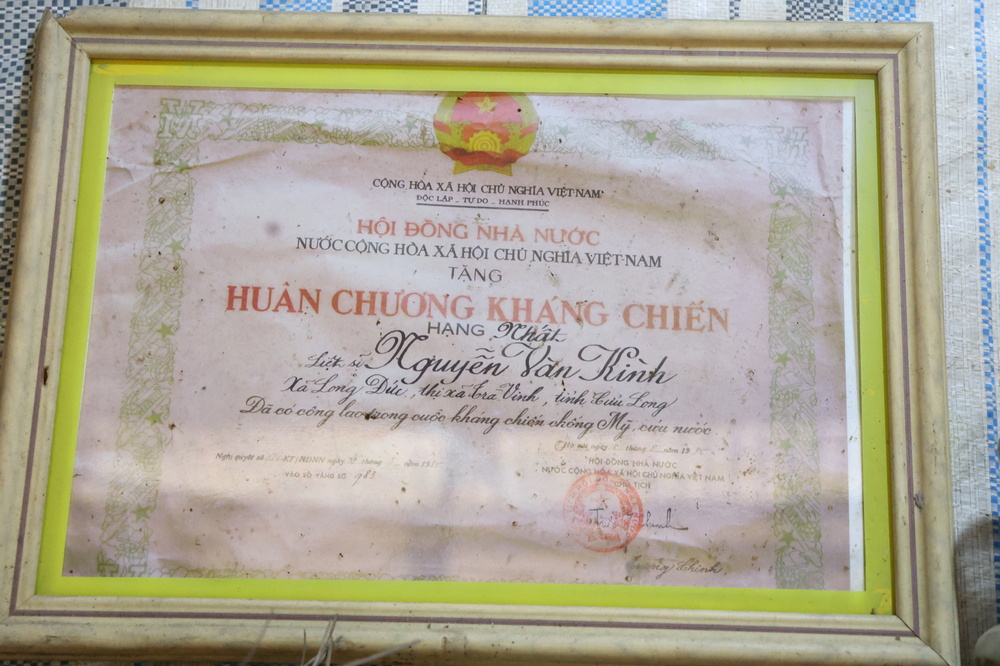 CỘNG HÒA XÃ HỘI CHỦ NGHĨA VIỆT NAM
ĐỘC LẬP - TỰ DO - HẠNH PHÚC
HỘI ĐỒNG NHÀ NƯỚC
NƯỚC CỘNG HÒA XÃ HỘI CHỦ NGHĨA VIỆT-NAM
TẶNG
HUÂN CHƯƠNG KHÁNG CHIẾN
HẠNG Nhất
Liệt sĩ Nguyễn Văn Kình
Xã Long Đức, thị xã Trà Vinh, tỉnh Cửu Long
Đã có công lao trong cuộc kháng chiến chống Mỹ, cứu nước.
Nghị quyết số KT/HĐNN ngày tháng năm 19
VÀO SỔ VÀNG SỐ 983
Hà nội, ngày tháng năm 19
HỘI ĐỒNG NHÀ NƯỚC
NƯỚC CỘNG HÒA XÃ HỘI CHỦ NGHĨA VIỆT NAM
CHỦ TỊCH
Trường Chinh